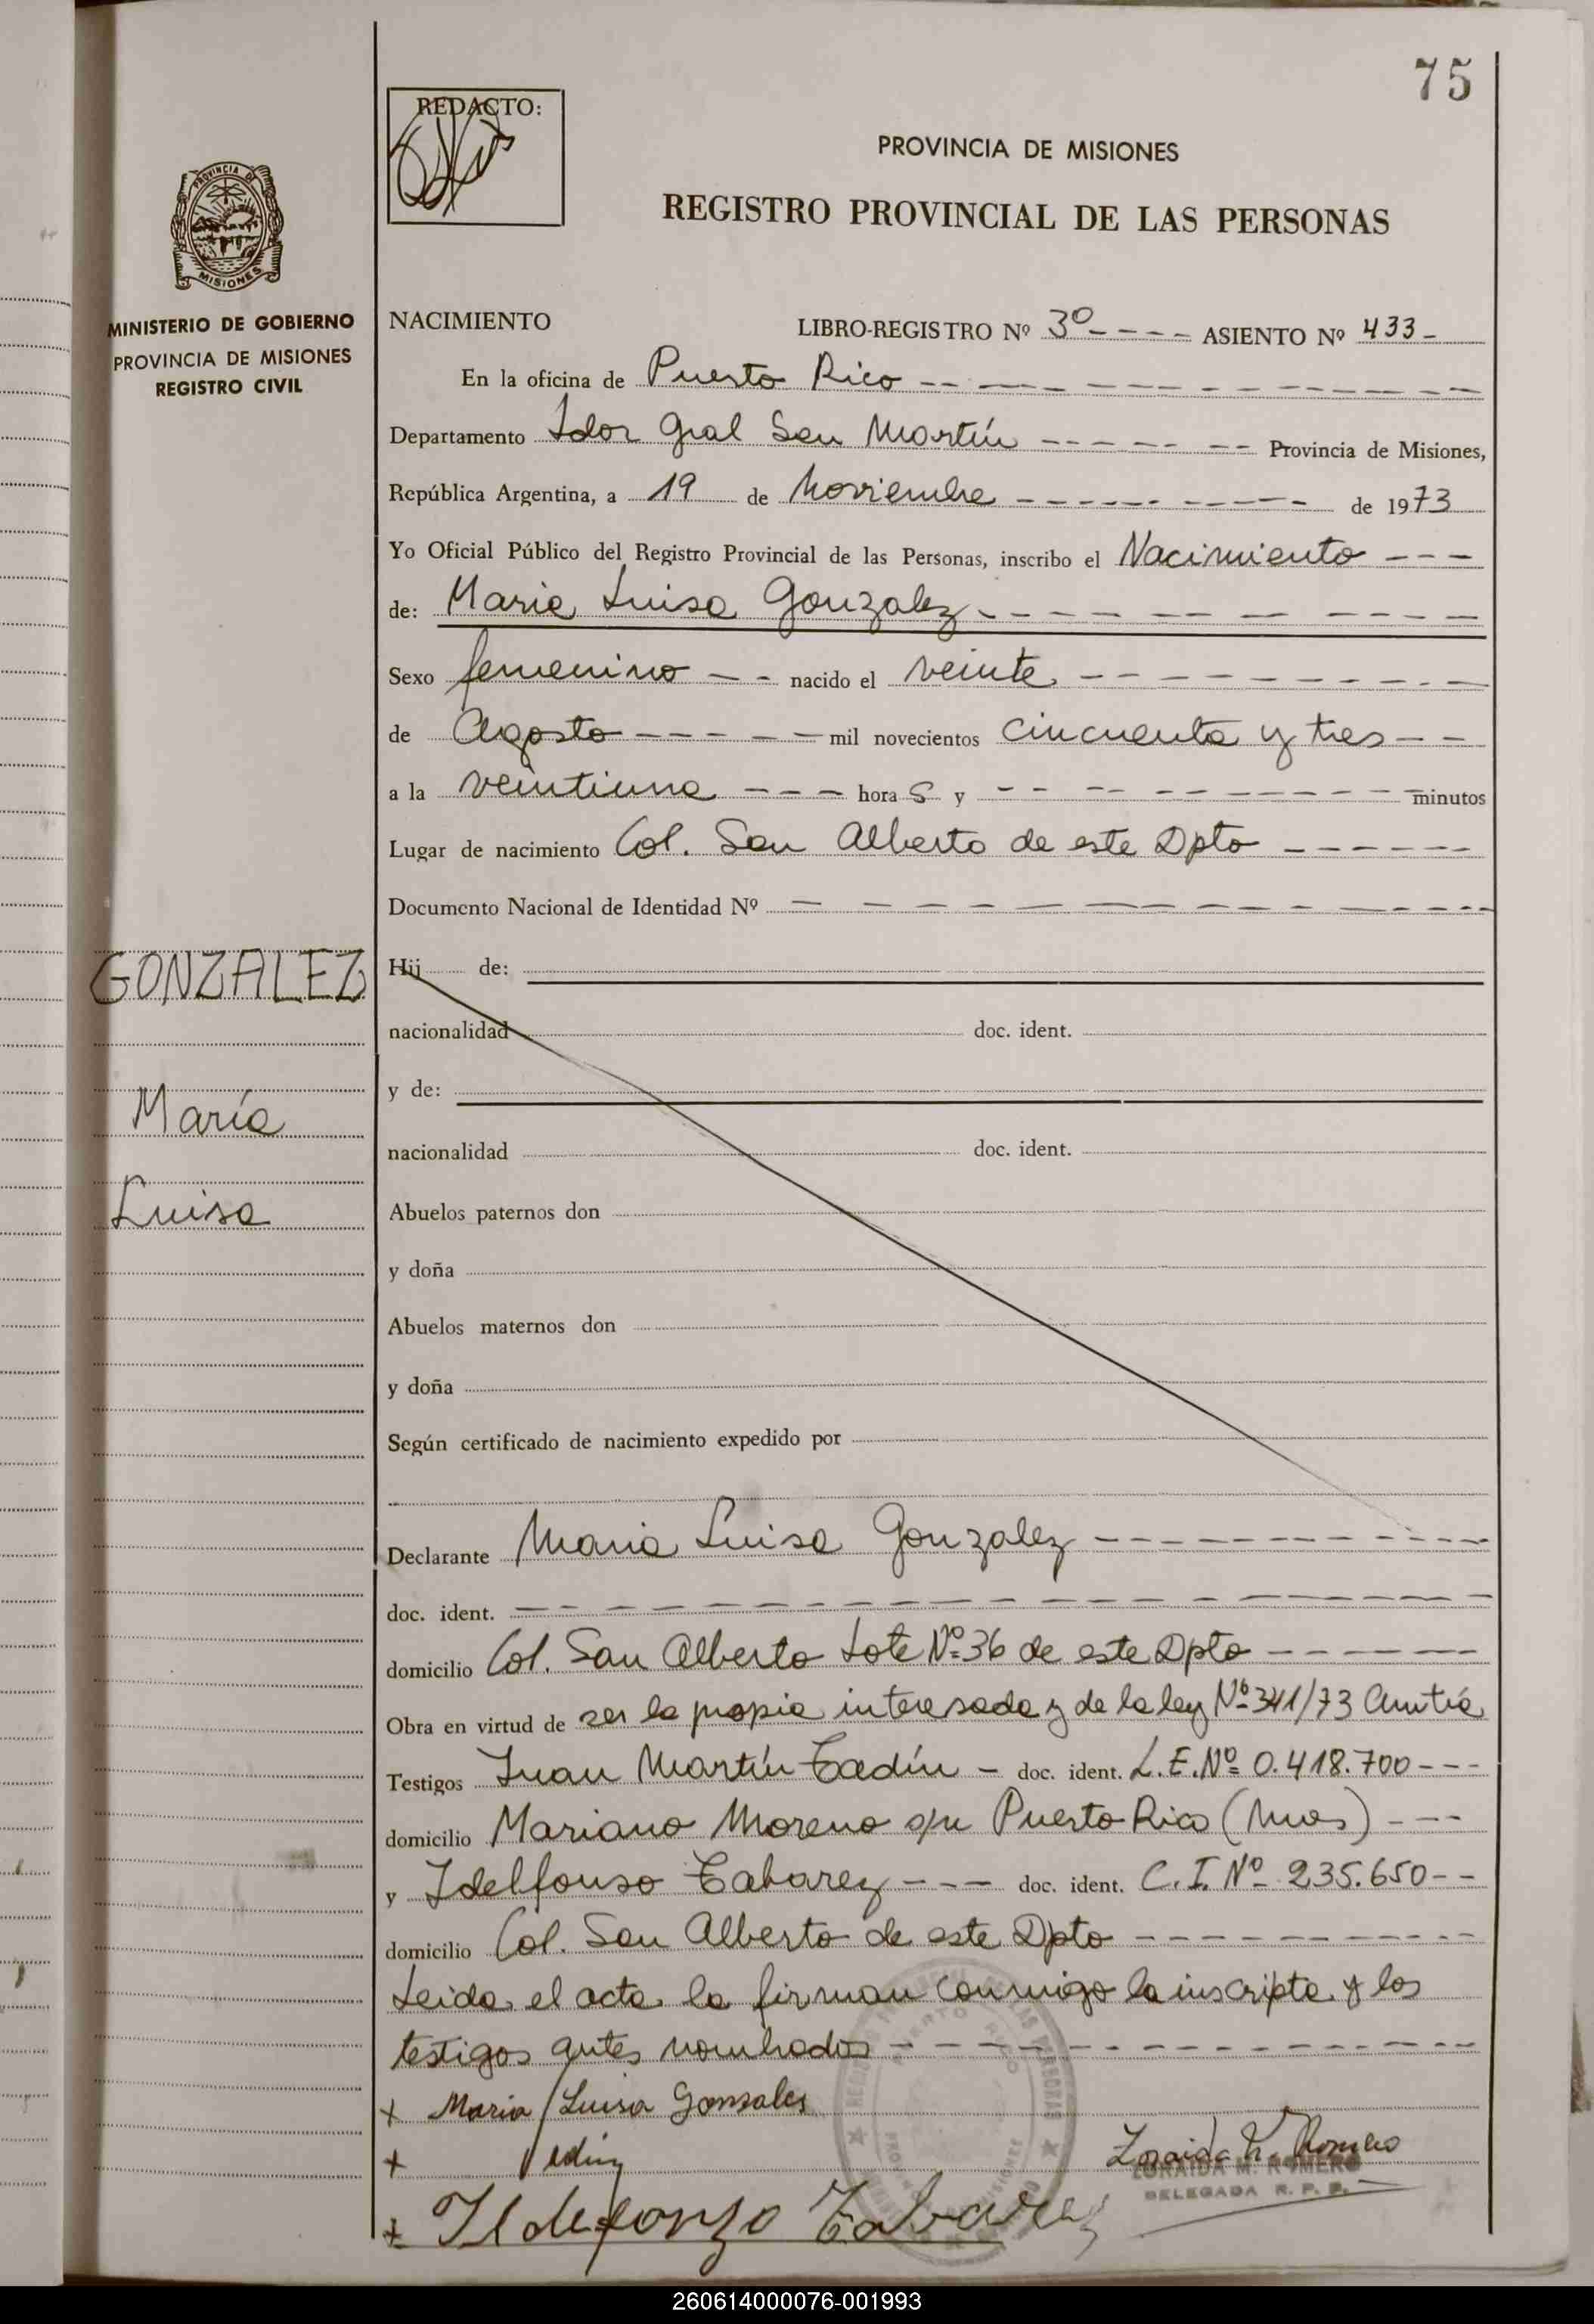 75
REDACTO:
PROVINCIA DE MISIONES
REGISTRO PROVINCIAL DE LAS PERSONAS
PROVINCIA DE
MISIONES
MINISTERIO DE GOBIERNO
PROVINCIA DE MISIONES
REGISTRO CIVIL
NACIMIENTO LIBRO-REGISTRO Nº 3º---- ASIENTO Nº 433-
En la oficina de Puerto Rico
Departamento Ldor Gral San Martín Provincia de Misiones,
República Argentina, a 19 de Noviembre de 1973
Yo Oficial Público del Registro Provincial de las Personas, inscribo el Nacimiento ---
de: Maria Luisa Gonzalez
Sexo femenino -- nacido el veinte
de Agosto ---- mil novecientos cincuenta y tres --
a la veintiuna --- hora s y minutos
Lugar de nacimiento Col. San Alberto de este Dpto
Documento Nacional de Identidad Nº
GONZALEZ
Hij de:
nacionalidad doc. ident.
y de:
María
nacionalidad doc. ident.
Luisa
Abuelos paternos don
y doña
Abuelos maternos don
y doña
Según certificado de nacimiento expedido por
Declarante Maria Luisa Gonzalez
doc. ident.
domicilio Col. San Alberto Lote Nº 36 de este Dpto
Obra en virtud de ser la propia interesada y de la ley Nº 341/73 Amtía
Testigos Juan Martín Tadín - doc. ident. L.E. Nº 0.418.700---
domicilio Mariano Moreno s/n Puerto Rico (Mnes) ---
y Idelfonso Tabarez --- doc. ident. C.I. Nº 235.650--
domicilio Col. San Alberto de este Dpto
Leida el acta la firman conmigo la inscripta y los
testigos antes nombrados
+ Maria Luisa Gonsales
+
Zoraida M. Romero
ZORAIDA M. ROMERO
DELEGADA R. P. P.
+ Ildefonzo Tabarez
260614000076-001993